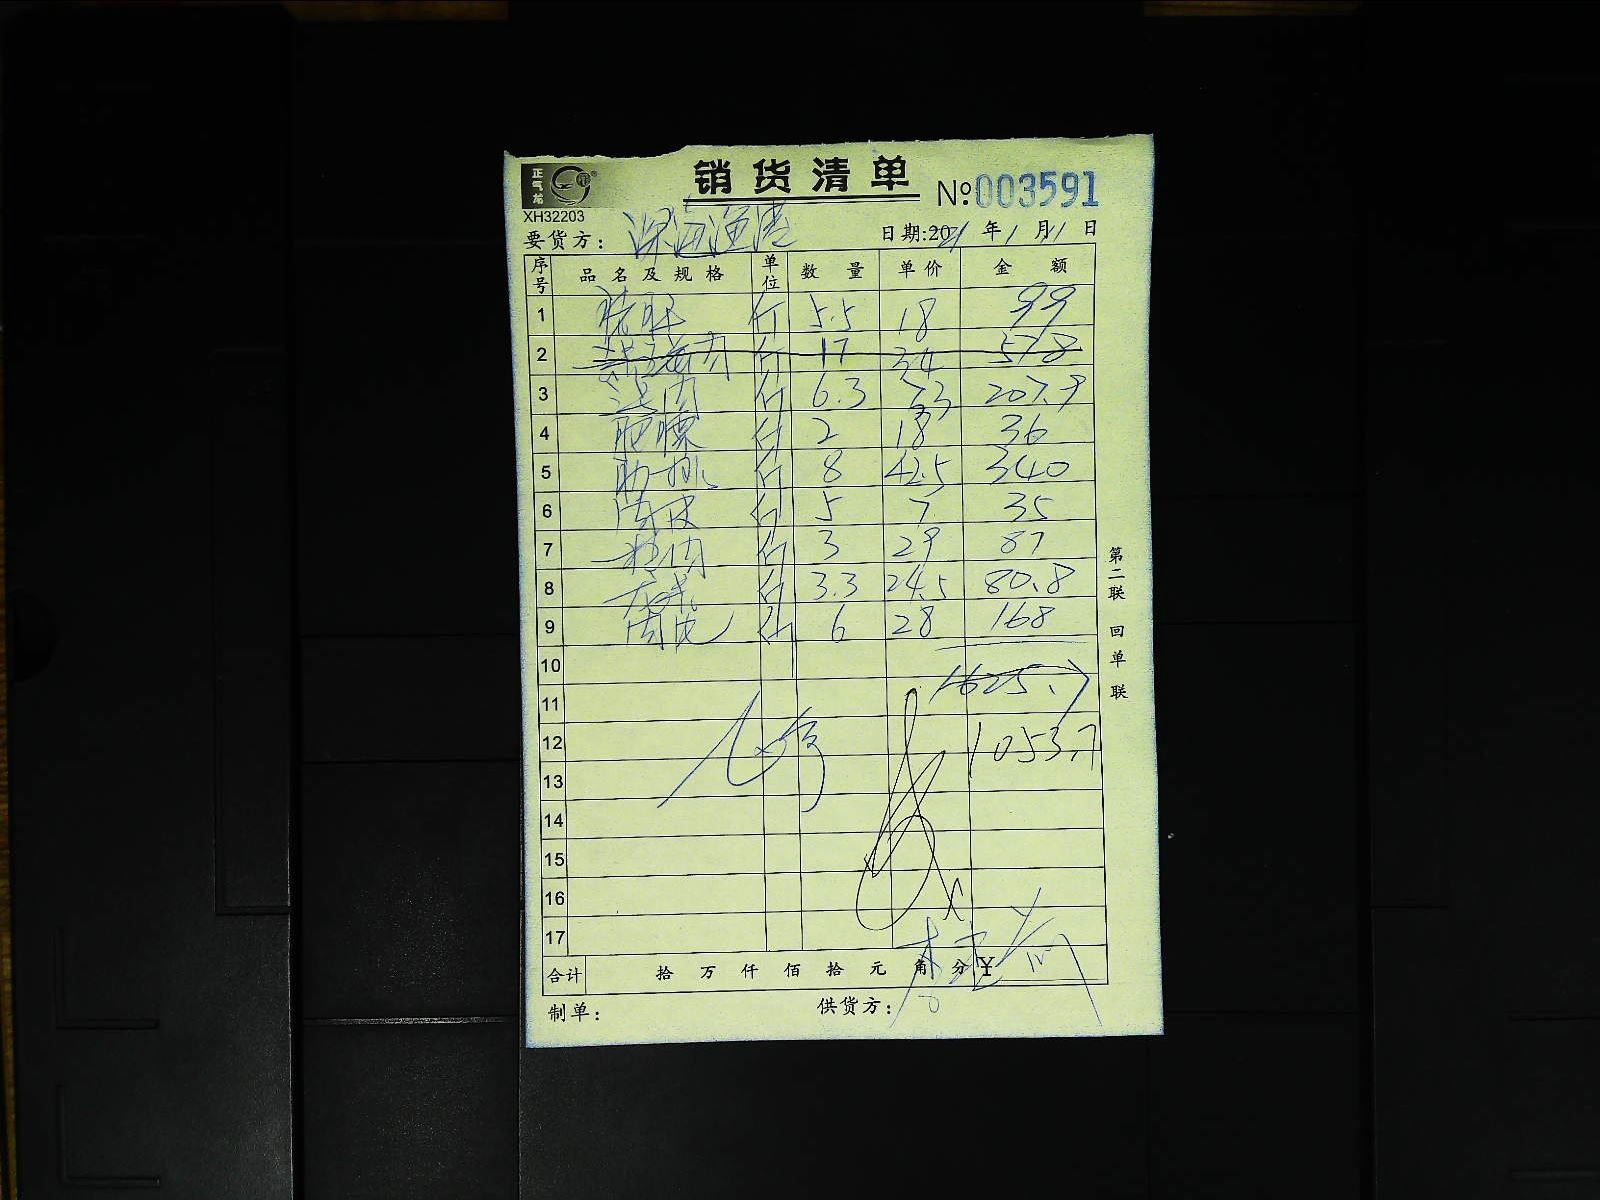 正气龙
销货清单
XH32203
№003591
要货方: 深海渔港
日期:2021年1月11日
序号 品名及规格 单位 数量 单价 金额
1 斤 5.5 18 99
2 斤 17 34 578
3 肉 斤 6.3 33 207.9
4 肥膘 斤 2 18 36
5 肋排 斤 8 42.5 340
6 肉皮 斤 5 7 35
7 肉 斤 3 29 87
8 斤 3.3 24.5 80.8
9 斤 6 28 168
10 1625.7
11
12 1053.7
13
14
15
16
17
合计 拾 万 仟 佰 拾 元 角 分 ¥
制单: 供货方:
第二联 回单联